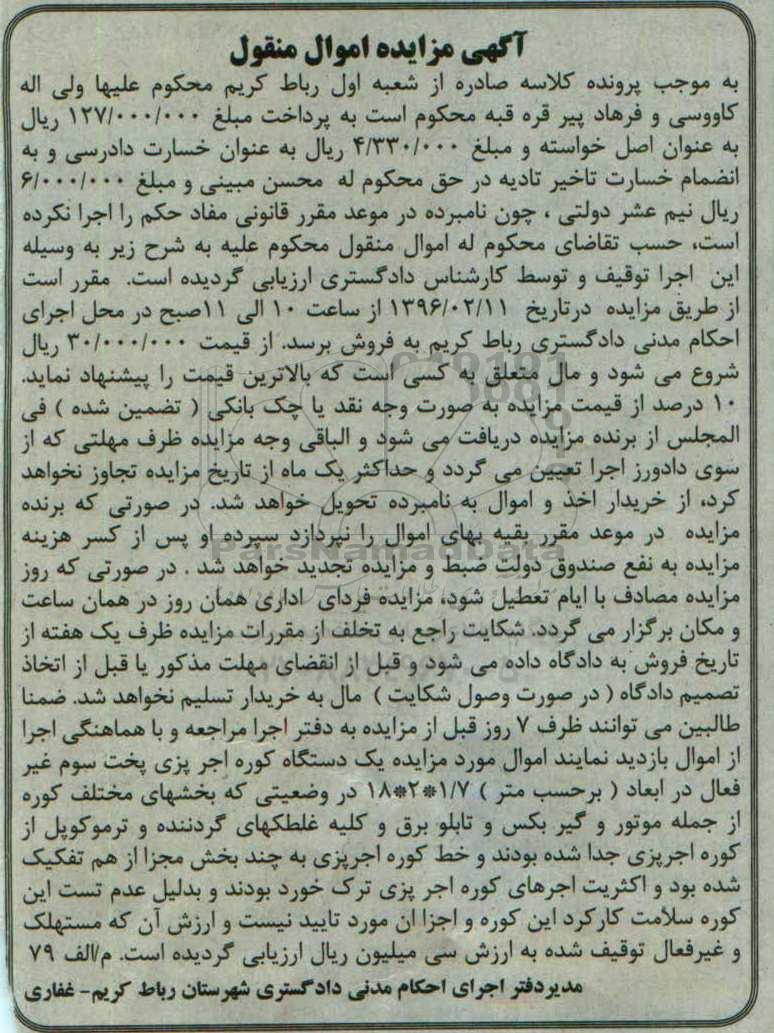 آگهی مزایده اموال منقول
به موجب پرونده کلاسه صادره از شعبه اول رباط کریم محکوم علیها ولی اله
کاووسی و فرهاد پیر قره قبه محکوم است به پرداخت مبلغ ۱۲۷/۰۰۰/۰۰۰ ریال
به عنوان اصل خواسته و مبلغ ۴/۳۳۰/۰۰۰ ریال به عنوان خسارت دادرسی و به
انضمام خسارت تاخیر تادیه در حق محکوم له محسن مبینی و مبلغ ۶/۰۰۰/۰۰۰
ریال نیم عشر دولتی ، چون نامبرده در موعد مقرر قانونی مفاد حکم را اجرا نکرده
است، حسب تقاضای محکوم له اموال منقول محکوم علیه به شرح زیر به وسیله
این اجرا توقیف و توسط کارشناس دادگستری ارزیابی گردیده است. مقرر است
از طریق مزایده درتاریخ ۱۳۹۶/۰۲/۱۱ از ساعت ۱۰ الی ۱۱صبح در محل اجرای
احکام مدنی دادگستری رباط کریم به فروش برسد. از قیمت ۳۰/۰۰۰/۰۰۰ ریال
شروع می شود و مال متعلق به کسی است که بالاترین قیمت را پیشنهاد نماید.
۱۰ درصد از قیمت مزایده به صورت وجه نقد یا چک بانکی ( تضمین شده ) فی
المجلس از برنده مزایده دریافت می شود و الباقی وجه مزایده ظرف مهلتی که از
سوی دادورز اجرا تعیین می گردد و حداکثر یک ماه از تاریخ مزایده تجاوز نخواهد
کرد، از خریدار اخذ و اموال به نامبرده تحویل خواهد شد. در صورتی که برنده
مزایده در موعد مقرر بقیه بهای اموال را نپردازد سپرده او پس از کسر هزینه
مزایده به نفع صندوق دولت ضبط و مزایده تجدید خواهد شد . در صورتی که روز
مزایده مصادف با ایام تعطیل شود، مزایده فردای اداری همان روز در همان ساعت
و مکان برگزار می گردد. شکایت راجع به تخلف از مقررات مزایده ظرف یک هفته از
تاریخ فروش به دادگاه داده می شود و قبل از انقضای مهلت مذکور یا قبل از اتخاذ
تصمیم دادگاه ( در صورت وصول شکایت ) مال به خریدار تسلیم نخواهد شد. ضمنا
طالبین می توانند ظرف ۷ روز قبل از مزایده به دفتر اجرا مراجعه و با هماهنگی اجرا
از اموال بازدید نمایند اموال مورد مزایده یک دستگاه کوره اجر پزی پخت سوم غیر
فعال در ابعاد ( برحسب متر ) ۱/۷*۲*۱۸ در وضعیتی که بخشهای مختلف کوره
از جمله موتور و گیر بکس و تابلو برق و کلیه غلطکهای گردننده و ترموکوپل از
کوره اجرپزی جدا شده بودند و خط کوره اجرپزی به چند بخش مجزا از هم تفکیک
شده بود و اکثریت اجرهای کوره اجر پزی ترک خورد بودند و بدلیل عدم تست این
کوره سلامت کارکرد این کوره و اجزا ان مورد تایید نیست و ارزش آن که مستهلک
و غیرفعال توقیف شده به ارزش سی میلیون ریال ارزیابی گردیده است. م/الف ۷۹
مدیردفتر اجرای احکام مدنی دادگستری شهرستان رباط کریم- غفاری
ParsNamadData